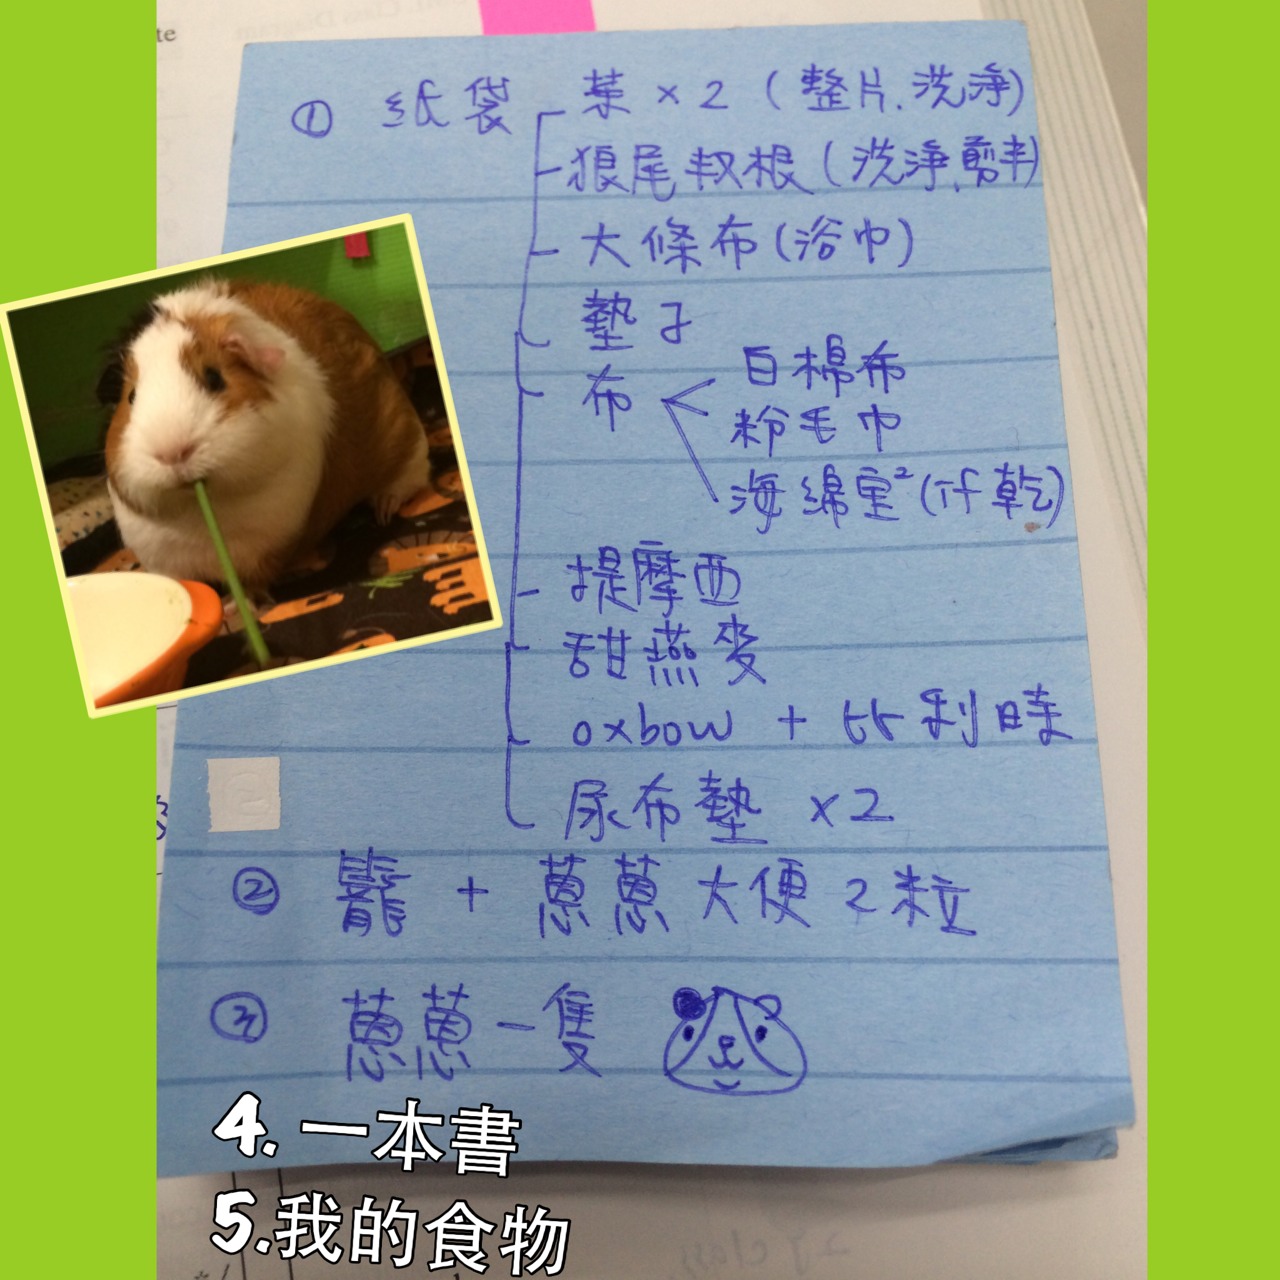 ① 紙袋 - 葉 x 2 (整片.洗淨)
- 狼尾叔根 (洗淨,剪半)
- 大條布 (浴巾)
墊子
- 布 < 白棉布
粉毛巾
海綿宝² (仔乾)
- 提摩西
- 甜燕麥
- oxbow + 比利時
尿布墊 x2
② 籠 + 蔥蔥大便2粒
③ 蔥蔥一隻
4. 一本書
5.我的食物